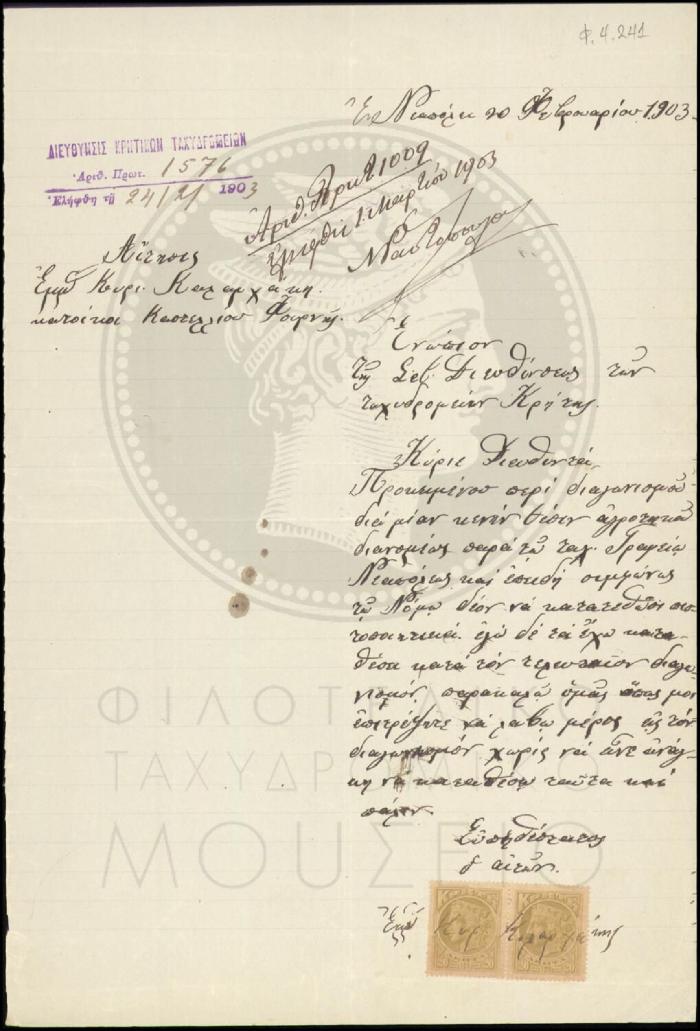 Φ.4.241
Ἐν Νεαπόλει 20 Φεβρουαρίου 1903.
ΔΙΕΥΘΥΝΣΙΣ ΚΡΗΤΙΚΩΝ ΤΑΧΥΔΡΟΜΕΙΩΝ
Ἀριθ. Πρωτ. 1576
Ἐλήφθη τῇ 24/2/ 1903
Ἀριθ. Πρωτ. 1009
1 Μαρτίου 1903
Αἴτησις
Ἐμοῦ Κυρ.
κατοίκου Καστελλίου Φουρνῆς.
Ἐνώπιον
τῆς Σεβ. Διευθύνσεως τῶν
ταχυδρομείων Κρήτης.
Κύριε Διευθυντά,
Προκειμένου περί διαγωνισμοῦ
διά μίαν κενήν θέσιν ἀγροτικοῦ
διανομέως παρά τῷ ταχ. Γραφείῳ
Νεαπόλεως καί ἐπειδή συμφώνως
τῷ Νόμῳ δέον νά κατατεθῶσι πισ-
τοποιητικά. ἐγώ δέ τά ἔχω κατα-
θέσει κατά τόν τελευταῖον διαγω-
νισμόν, παρακαλῶ ὑμᾶς ὅπως μοι
ἐπιτρέψητε νά λάβω μέρος εἰς τόν
διαγωνισμόν χωρίς νά ἀνάγ-
κη νά καταθέσω ταῦτα καί
πάλιν.
Εὐπειθέστατος
ὁ αἰτῶν.
Κυρ.
ΦΙΛΟΤΕΛΙΚΟ
ΤΑΧΥΔΡΟΜΙΚΟ
ΜΟΥΣΕΙΟ